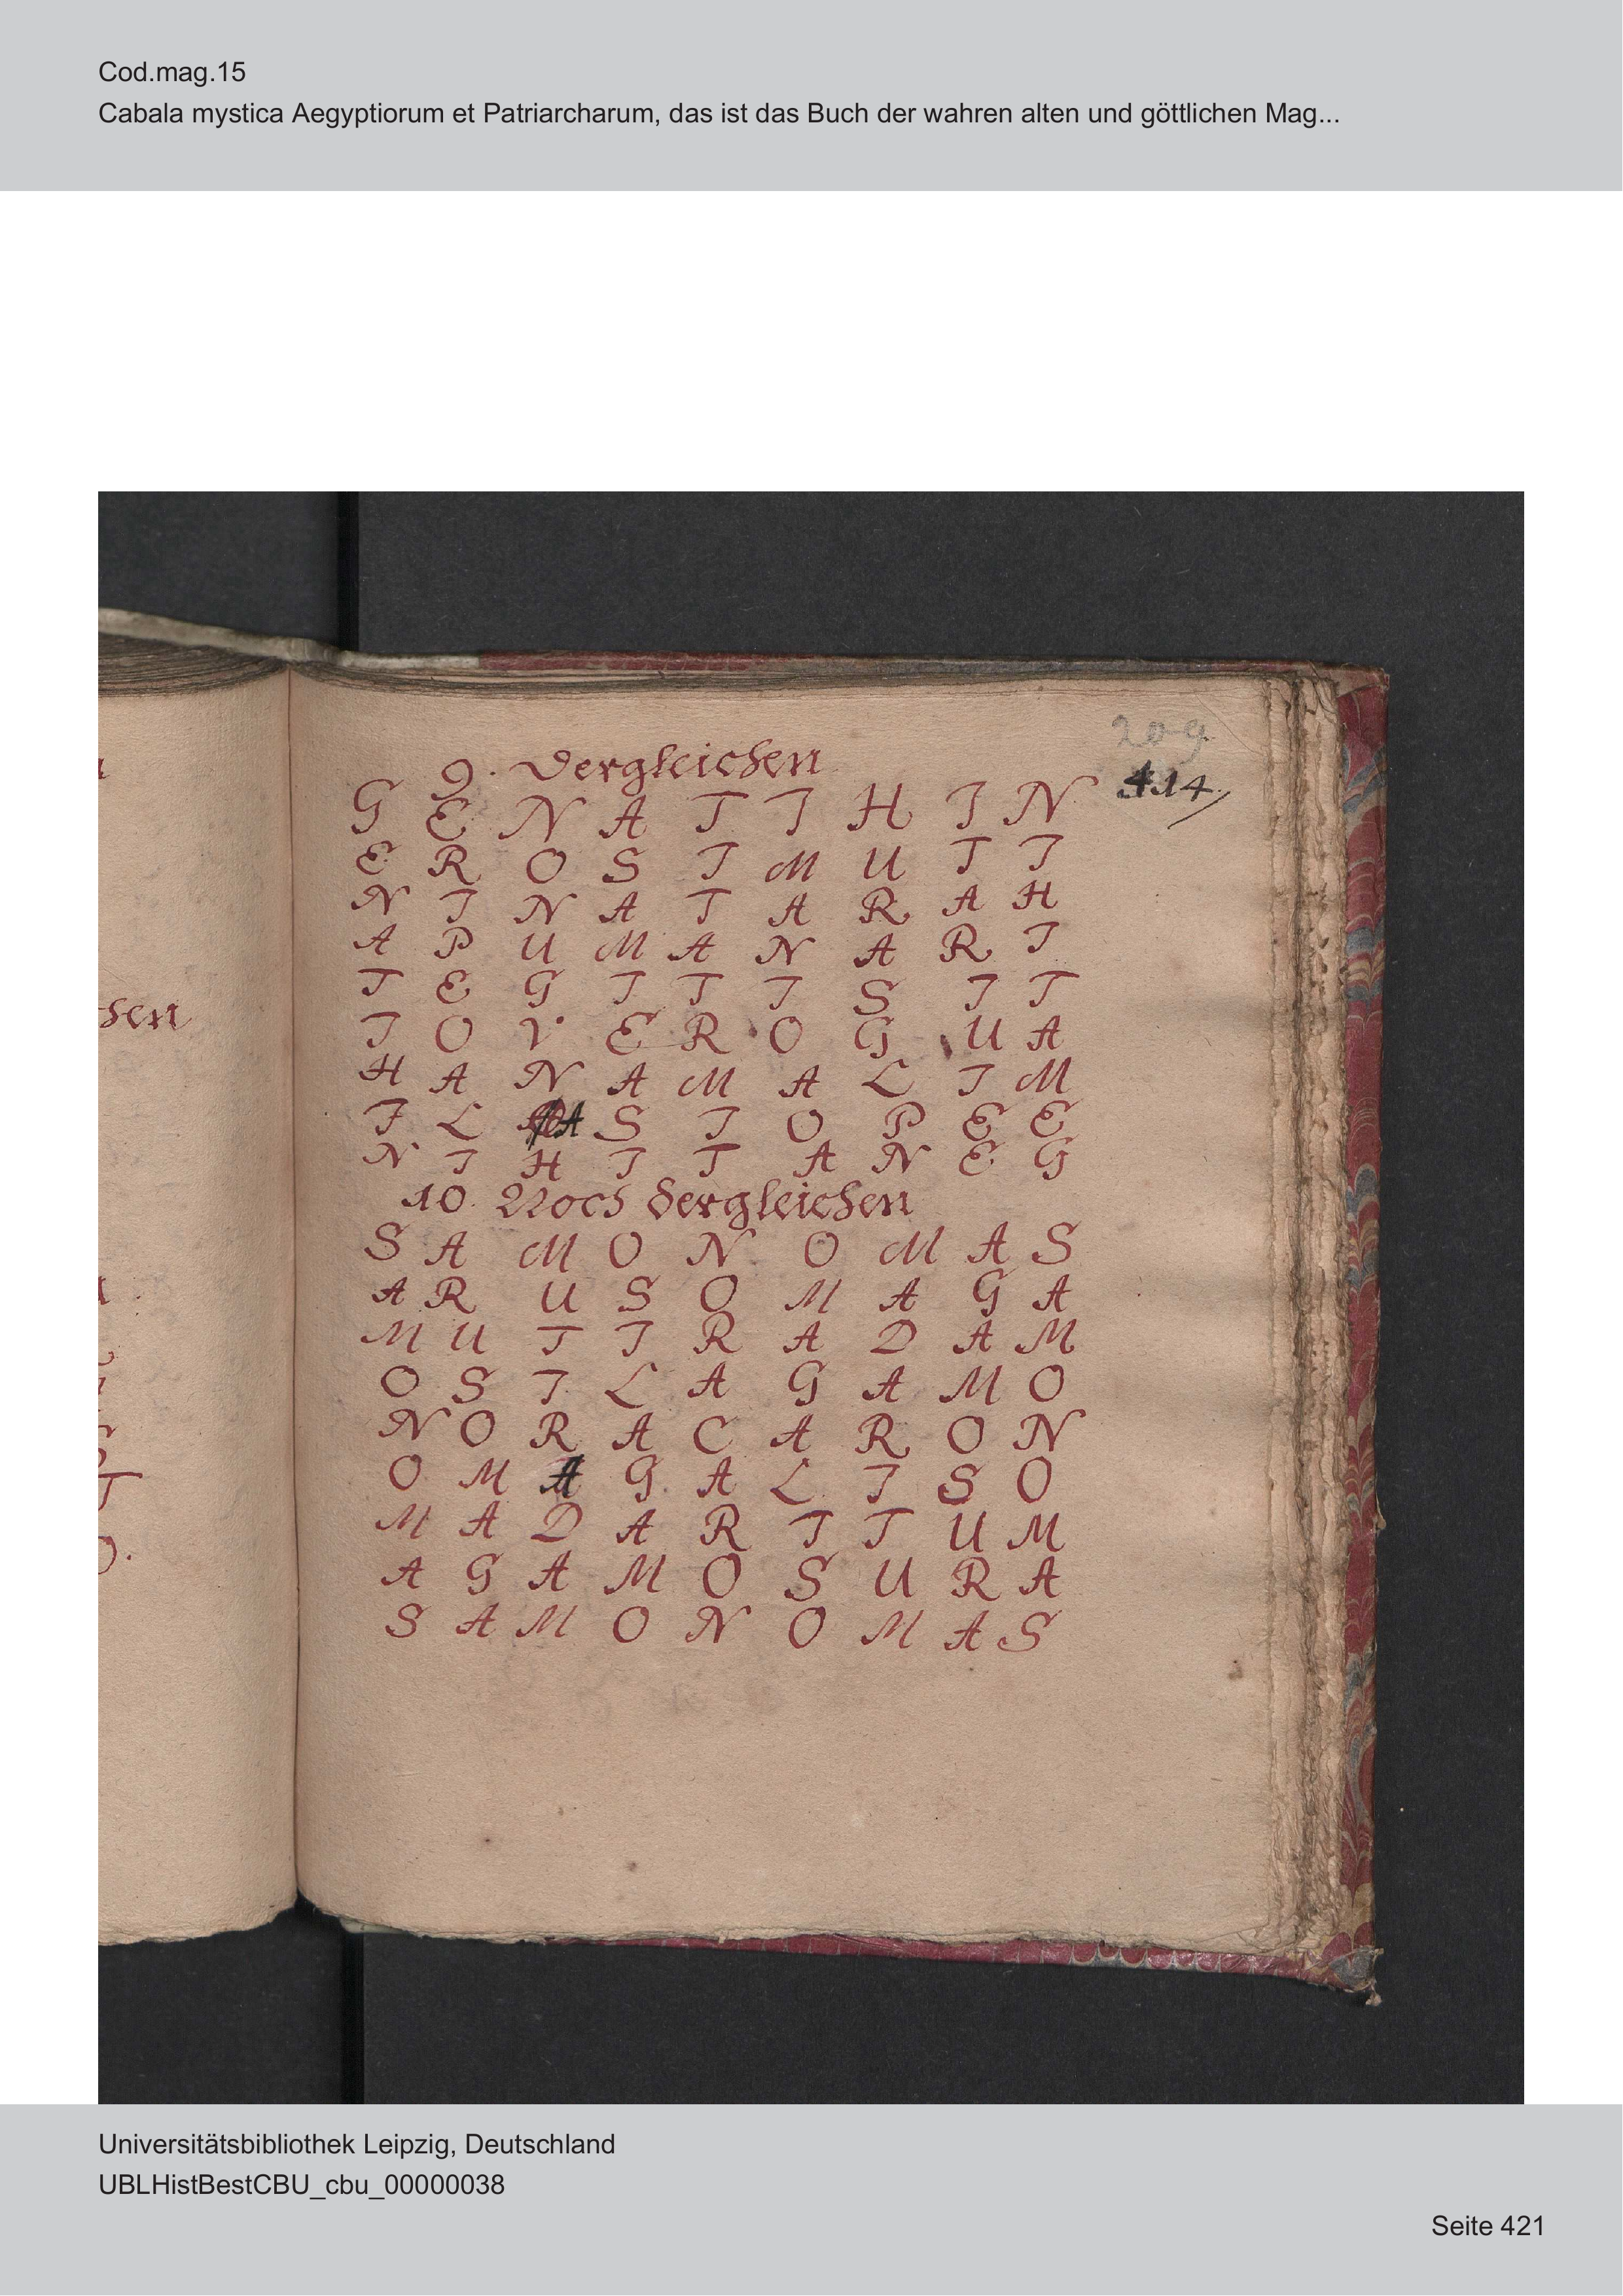 Cod.mag.15
Cabala mystica Aegyptiorum et Patriarcharum, das ist das Buch der wahren alten und göttlichen Mag...
209
414
9. Dergleichen
G E N A T I H I N
E R O S I M U T I
N I N A T A R A H
A P U M A N A R I
T E G I T I S I T
I O V E R O G U A
H A N A M A L I M
I L A S I O P E E
N I H I T A N E G
10. Noch dergleichen
S A M O N O M A S
A R U S O M A G A
M U T I R A D A M
O S I L A G A M O
N O R A C A R O N
O M A G A L I S O
M A D A R I T U M
A G A M O S U R A
S A M O N O M A S
Universitätsbibliothek Leipzig, Deutschland
UBLHistBestCBU_cbu_00000038
Seite 421